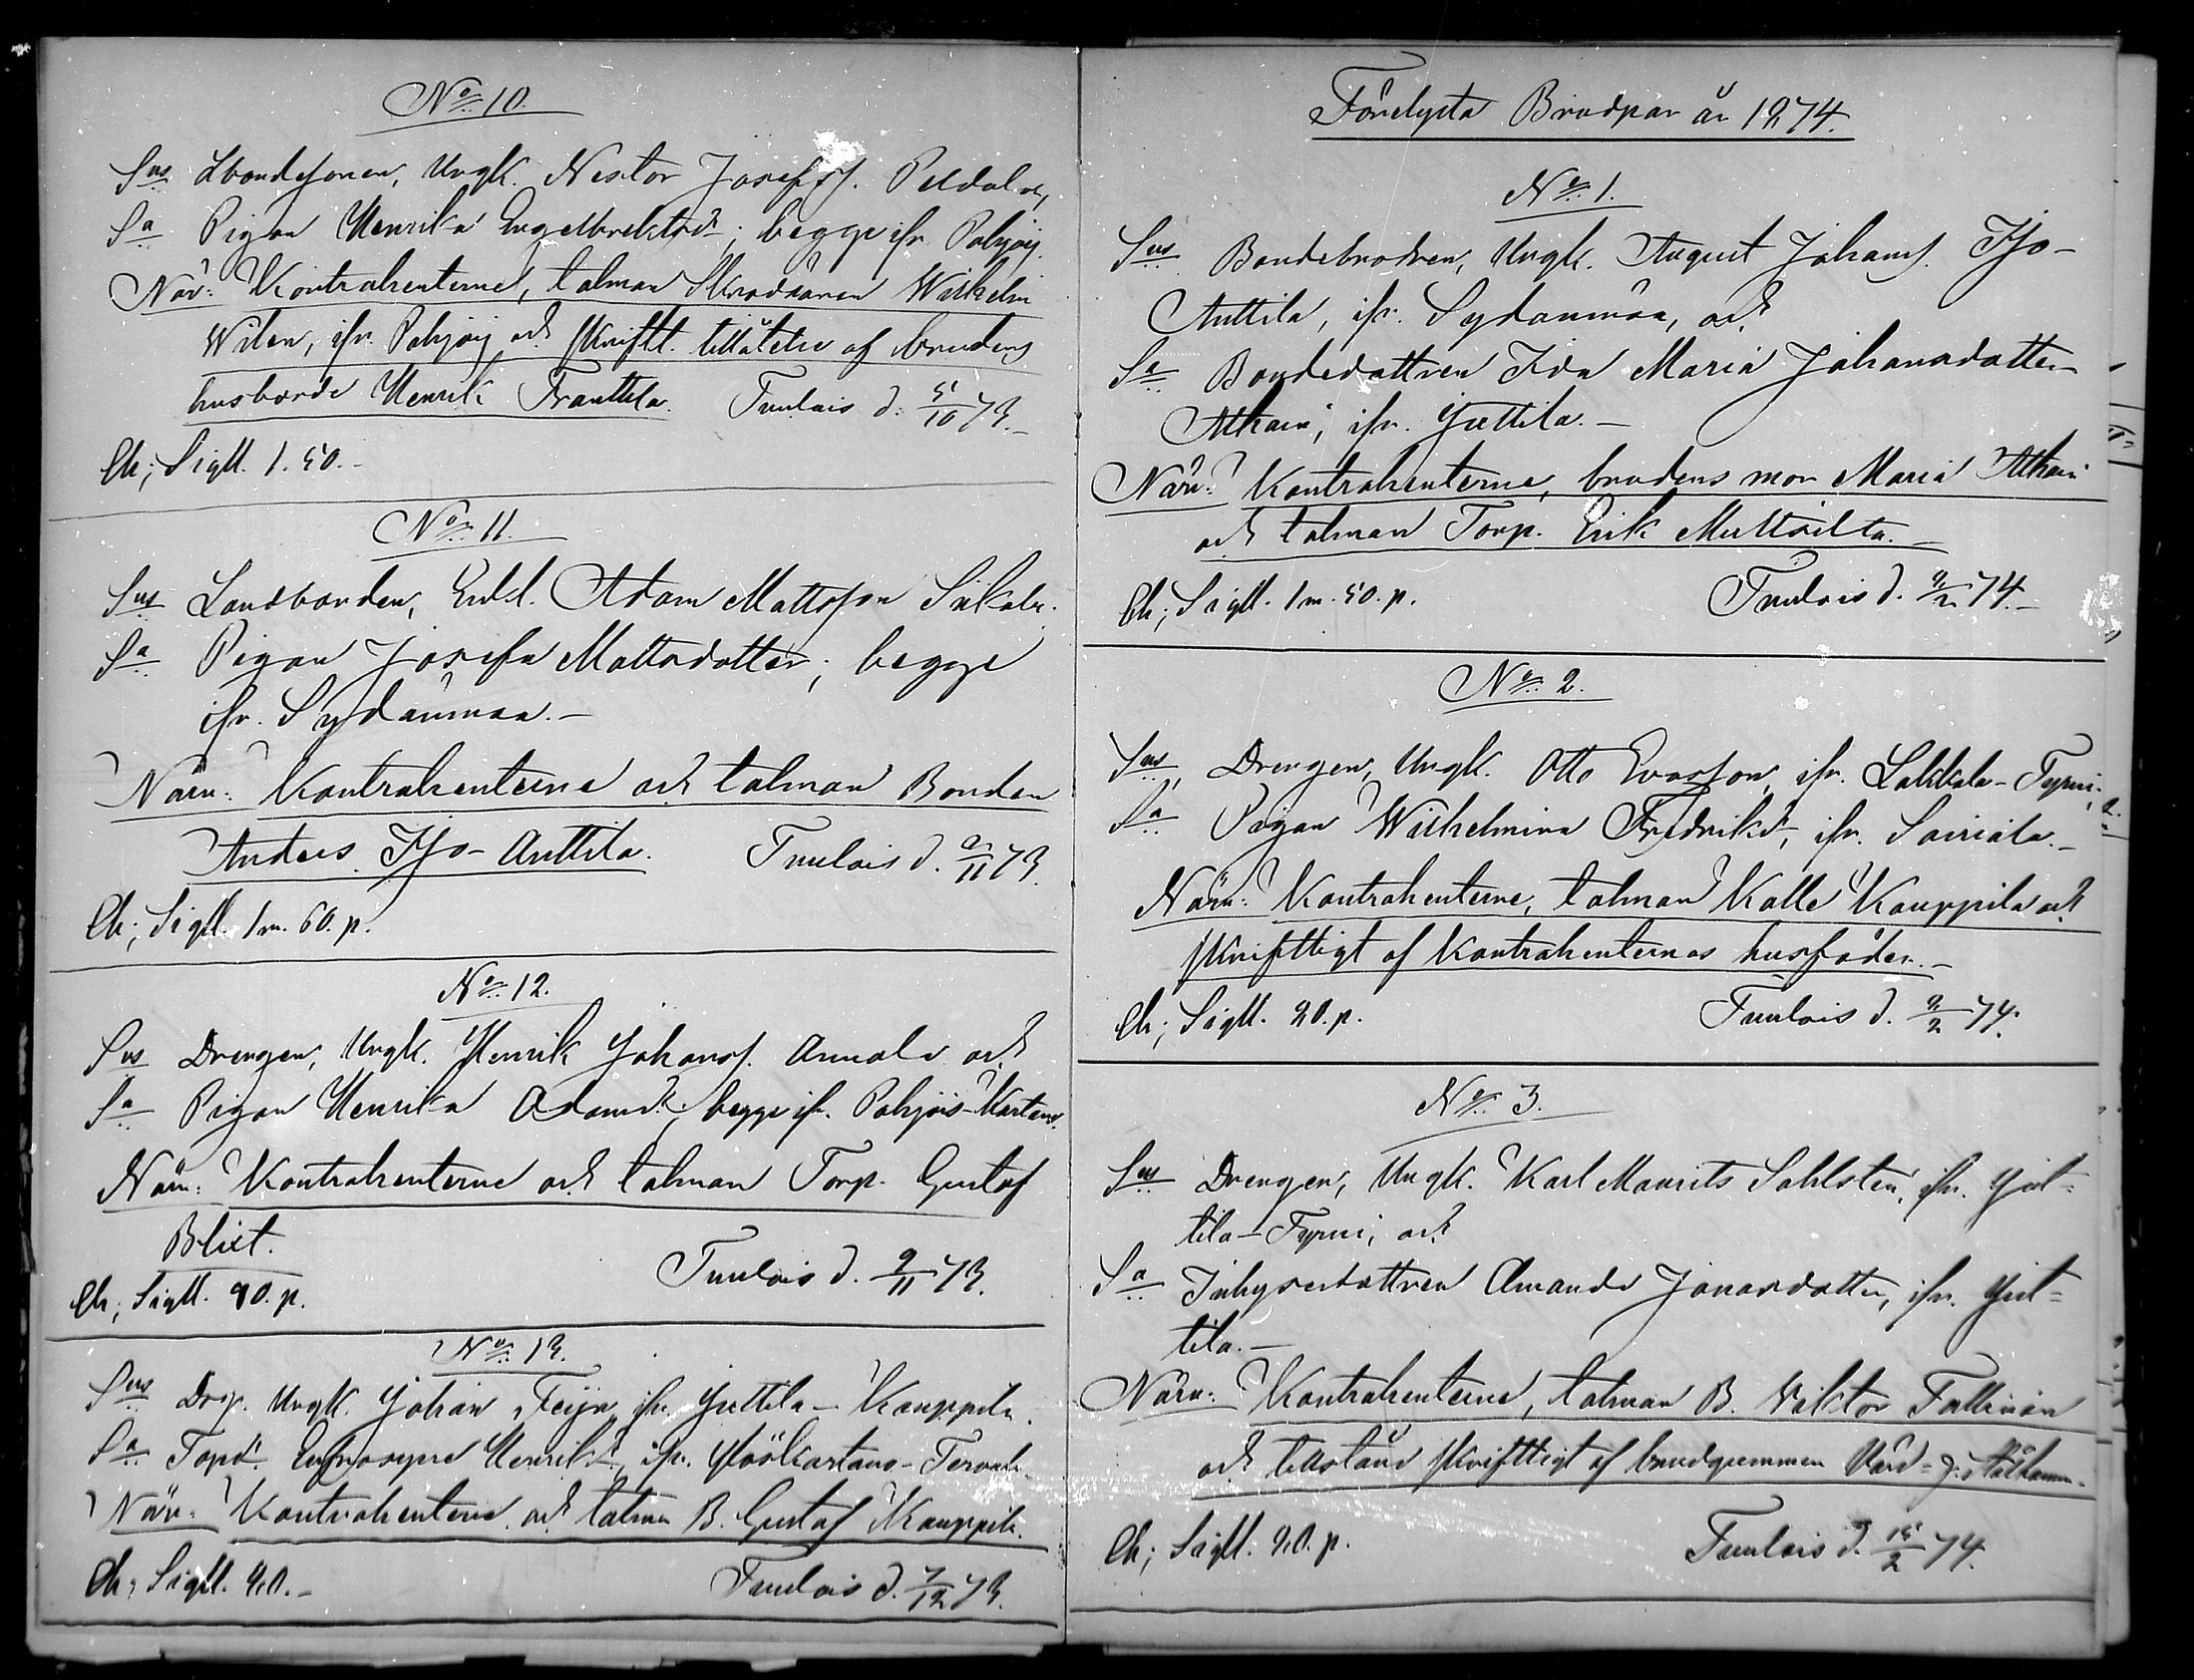 No 10.
Sus Lbondesonen, Ungk. Nestor Josefss.
Sa Pigan Henrika Engelbrektsdr; begge ifr. Pohjois
Närv: Kontrahenterne, talman Skräddaren Wilhelm
Wilen, ifr. Pohjois och skriftl. tillåtelse af brudens
husbonde Henrik Franttila. Tuulois d. 5/10 73.
Ch; Sigill. 1.50.
No 11.
Sus Landbonden, Enkl. Adam Mattsson
Sa Pigan Josefa Mattsdotter; begge
ifr. Sydänmaa.
Närv: Kontrahenterne och talman Bonden
Anders Iso-Anttila. Tuulois d. 9/11 73.
Ch; Sigill. 1 m. 60. p.
No 12.
Sus Drengen, Ungk. Henrik Johanss. Annala och
Sa Pigan Henrika Adamsdr; begge ifr. Pohjois-Kartano.
Närv: Kontrahenterne och talman Torp. Gustaf
Blixt.
Ch; Sigill. 90. p. Tuulois d. 9/11 73.
No 13.
Sus Drg. Ungk. Johan Feijn ifr. Juttila - Kauppila.
Sa Tapd. Eufrosyne Henriksd, ifr.
Närv: Kontrahenterne och talman B. Gustaf Kauppila.
Ch; Sigill. 90. Tuulois d. 7/12 73.
Förelysta Brudpar år 1874.
No 1.
Sus Bondebrodren, Ungk. August Johanss. Iso-
Anttila, ifr. Sydänmaa, och
Sa Bondedottren Ida Maria Johansdotter
Alhain, ifr. Juttila.
Närv: Kontrahenterne, brudens mor Maria Alhain
och talman Torp. Erik Multsilta.
Ch; Sigill. 1 m. 50. p. Tuulois d. 9/2 74.
No 2.
Sus, Drengen, Ungk. Otto Evasson, ifr. Lakkala-Tyrni;
Sa Pigan Wilhelmina Fredriksd, ifr. Sairiala.
Närv: Kontrahenterne, talman Kalle Kauppila och
skriftligt af Kontrahenternas husbönder.
Ch; Sigill. 90. p. Tuulois d. 9/2 74.
No 3.
Sus Drengen, Ungk. Karl Maurits Sahlsten, ifr. Jut=
tila-Tyrni, och
Sa Inhysesdottren Amanda Jonasdotter, ifr. Jut=
tila.
Närv: Kontrahenterne, talman B. Viktor
och tillstånd skriftligt af brudgummen
Ch; Sigill. 90. p. Tuulois d. 15/2 74.